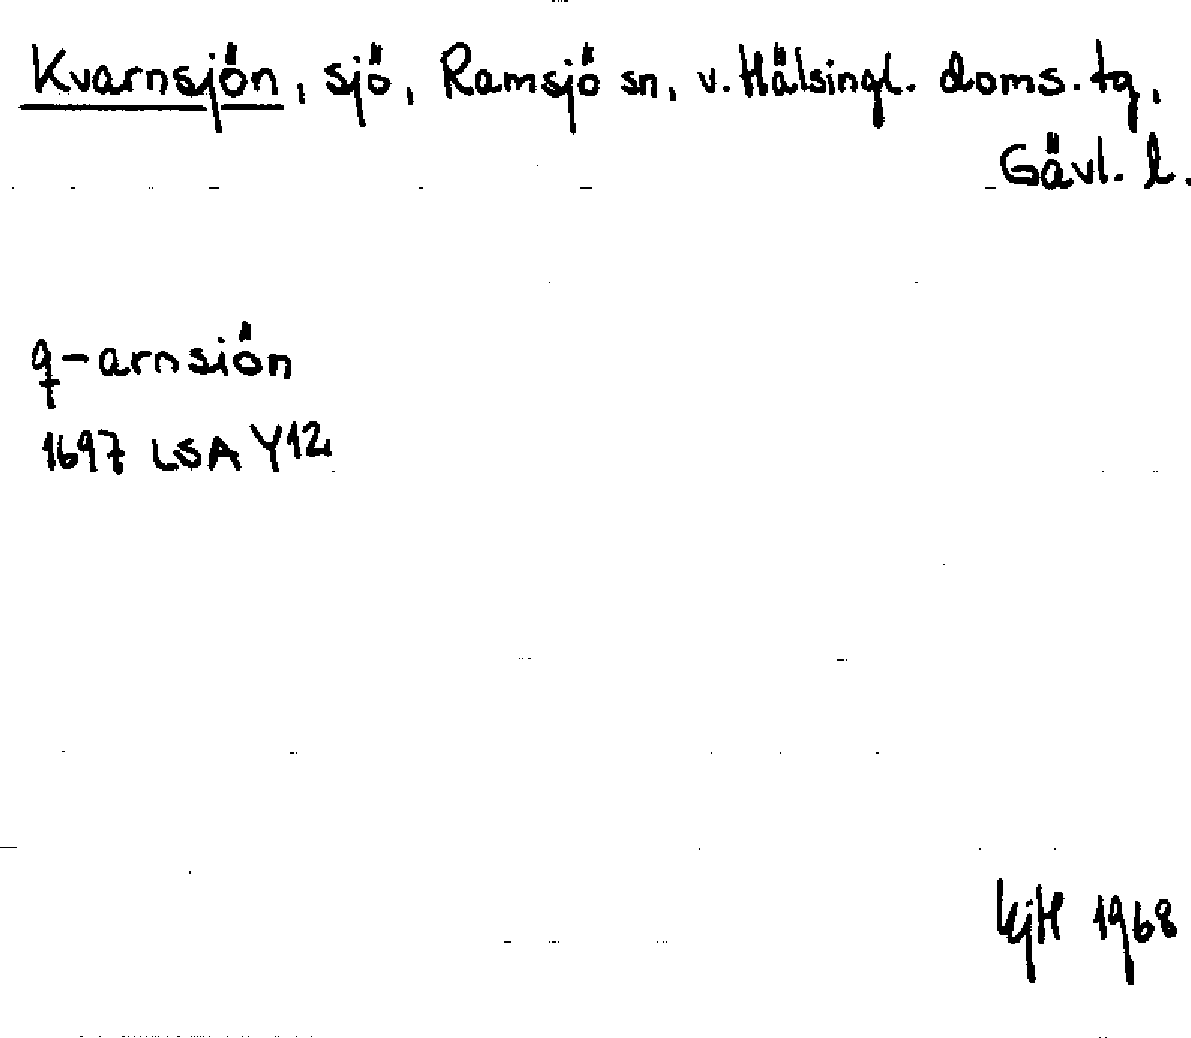 Kvarnsjön, sjö, Ramsjö sn, v. Hälsingl. doms. tg,
Gävl. l.
q-arnsiön
1697 LSA Y12
1968